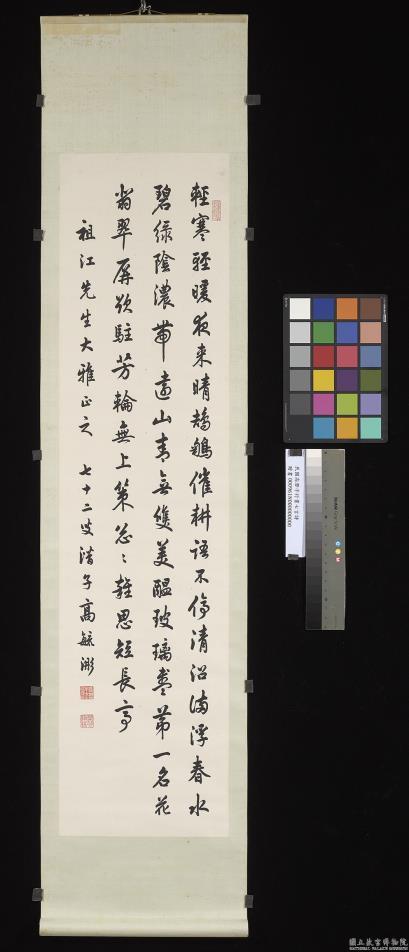 輕寒輕暖夜來晴鵓鴣催耕語不停清沼滿浮春水
碧綠陰濃帶遠山青無雙美醞玻璃盞第一名花
翡翠屏欲駐芳輪無上策怱〻離思短長亭
祖江先生大雅正之 七十二叟潛子高毓浵
國立故宮博物院
NATIONAL PALACE MUSEUM